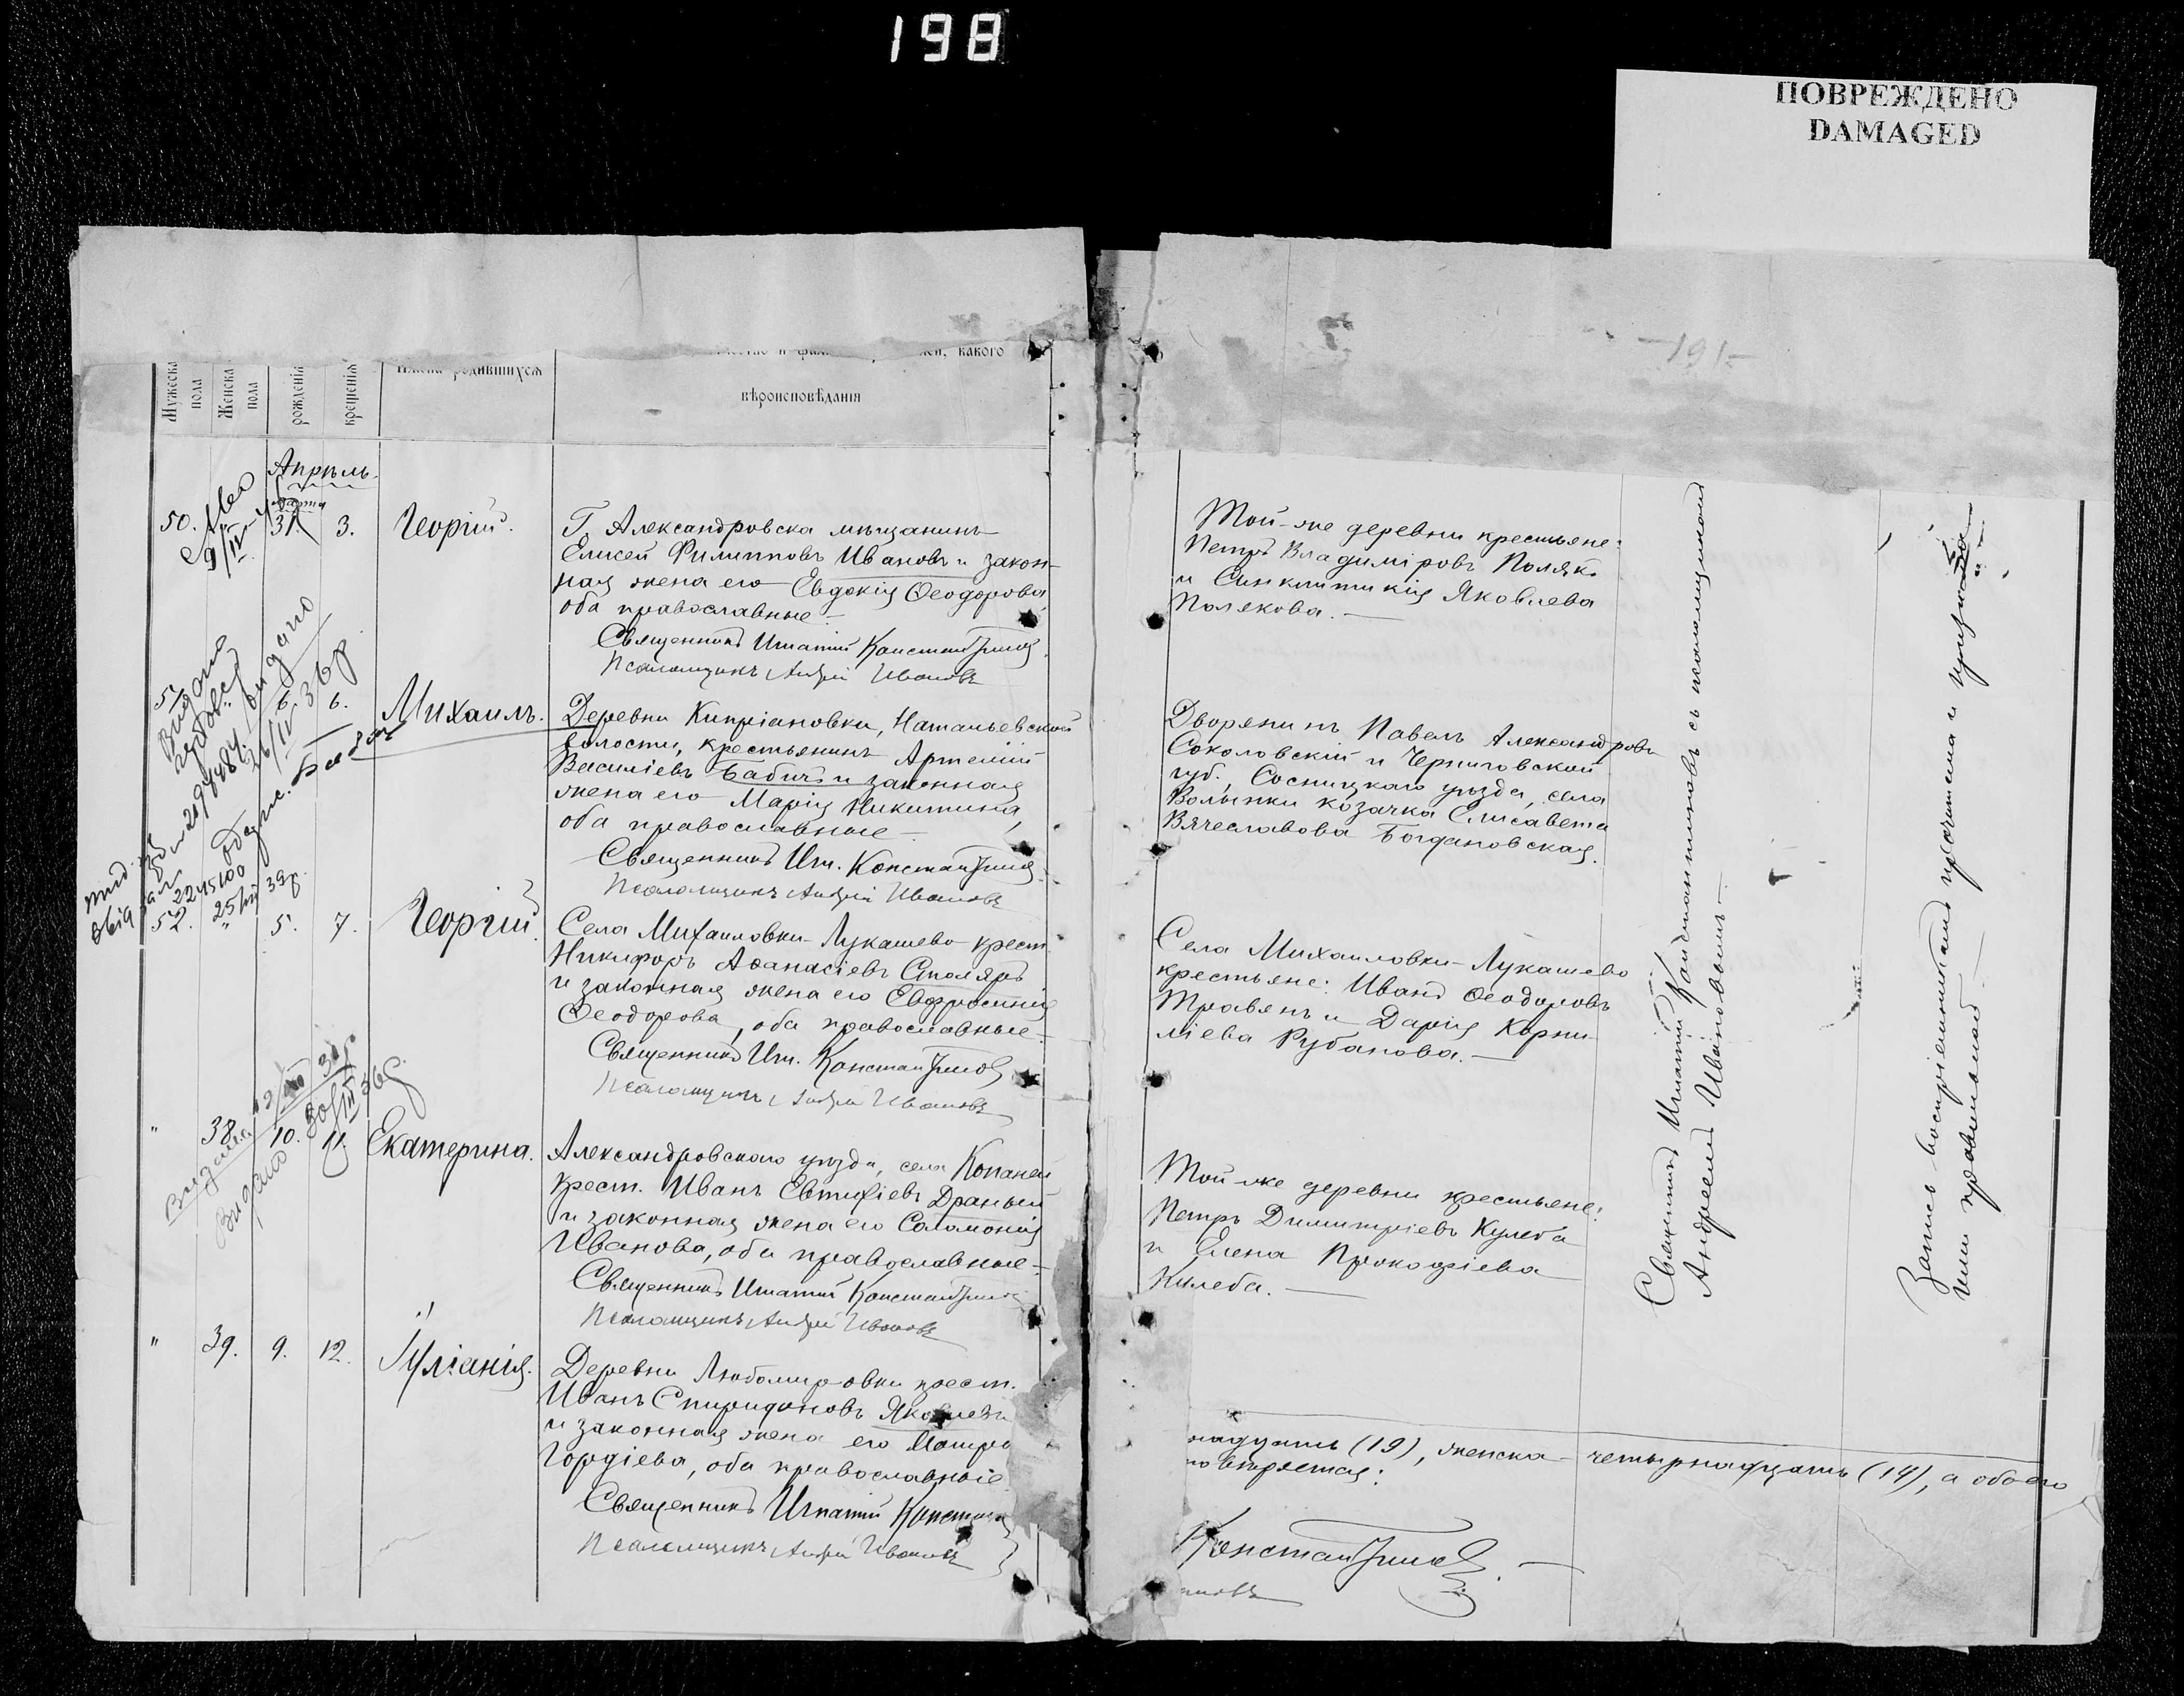 198
ПОВРЕЖДЕНО
DAMAGED
-191-
Мужеска пола
Женска пола
рожденія
крещенія
Имена родившихся
какого
вѣроисповѣданія
Апрѣль.
марта
50.
9/IV
31.
3.
Георгій.
Г. Александровска мѣщанинъ
Елисей Филипповъ Ивановъ и закон-
ная жена его Евдокія Ѳеодорова
оба православные –
Священникъ Игнатій Константиновъ
Псаломщикъ Андрей Ивановъ
51.
Видано
видано
26/IV 36р.
6.
6.
Михаилъ.
Деревни Кипріановки, Натальевской
волости, крестьянинъ Артемій
Василіевъ Бабичъ и законная
жена его Марія Никитина,
оба православные –
Священникъ Игн. Константиновъ
Псаломщикъ Андрей Ивановъ
39р.
52.
"
5.
7.
Георгій.
Села Михайловки-Лукашево крест.
Никифоръ Аѳанасіевъ Столяръ
и законная жена его Евфросинія
Ѳеодорова, оба православные –
Священникъ Игн. Константиновъ
Псаломщикъ Андрей Ивановъ
Видано
30/III 36р.
"
38.
10.
11.
Екатерина.
Александровскаго уѣзда, села Копаней
крест. Иванъ Евтихіевъ Драный
и законная жена его Соломонія
Иванова, оба православные –
Священникъ Игнатій Константиновъ
Псаломщикъ Андрей Ивановъ
"
39.
9.
12.
Іуліанія.
Деревни Любомировки крест.
Иванъ Спиридоновъ Яковлевъ
и законная жена его Матро
Гордіева, оба православные
Священникъ Игнатій Констан
Псаломщикъ Андрей Ивановъ
Той-же деревни крестьяне:
Петръ Владиміровъ Поляк.
и Синклитикія Яковлева
Полякова. –
Дворянинъ Павелъ Александровъ
Соколовскій и Черниговской
губ., Сосницкаго уѣзда, села
Волынки козачка Елисавета
Вячеславова Богдановская.
Села Михайловки-Лукашево
крестьяне: Иванъ Ѳеодоровъ
Травянъ и Дарія Корни-
ліева Рубанова. –
Той-же деревни крестьяне:
Петръ Димитріевъ Кулеба
и Елена Прокофіева
Кулеба. –
Священникъ Игнатій Константиновъ съ псаломщикомъ
Андреемъ Ивановымъ –
Запись воспріемниками прочитана и
ими правильной –
надцать (19), женска – четырнадцать (14), а обоего
Константиновъ. –
ановъ